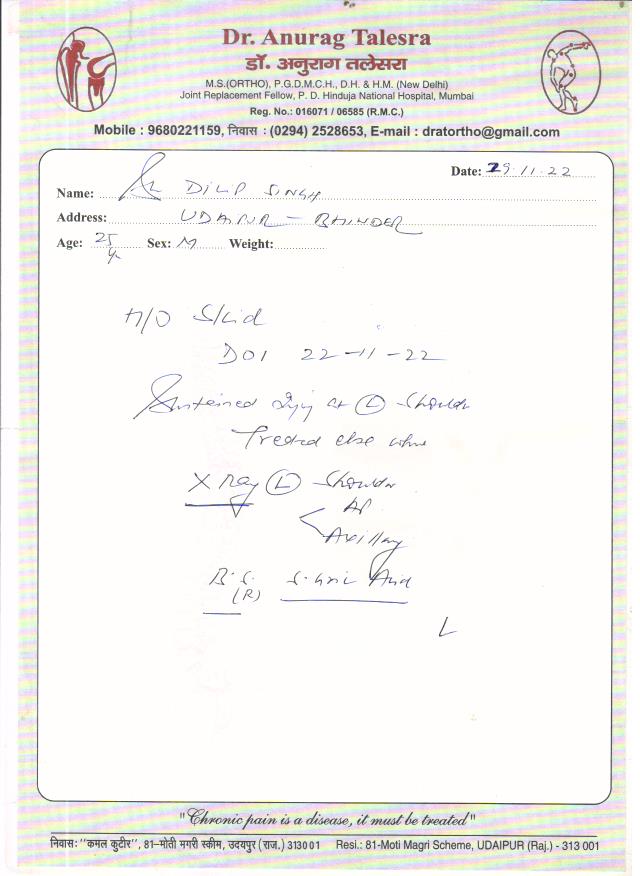 Dr. Anurag Talesra
डॉ. अनुराग तलेसरा
M.S.(ORTHO), P.G.D.M.C.H., D.H. & H.M. (New Delhi)
Joint Replacement Fellow, P. D. Hinduja National Hospital, Mumbai
Reg. No.: 016071 / 06585 (R.M.C.)
Mobile : 9680221159, निवास : (0294) 2528653, E-mail : dratortho@gmail.com
Date: 29.11.22
Name: DILIP SINGH
Address: UDAIPUR - BHINDER
Age: 25 yr Sex: M Weight:
H/O Skid
DOI 22-11-22
Sustained injury at L Shoulder
Treated else where
X Ray L Shoulder
AP
Axillary
B.S. (R) S. Uric Acid
"Chronic pain is a disease, it must be treated"
निवास: "कमल कुटीर", 81-मोती मगरी स्कीम, उदयपुर (राज.) 313001 Resi.: 81-Moti Magri Scheme, UDAIPUR (Raj.) - 313 001